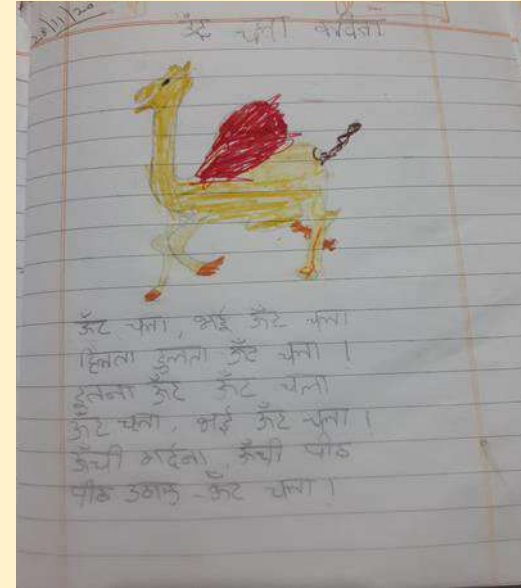 20/11/20
ऊँट चला कविता
ऊँट चला, भई ऊँट चला
हिलता डुलता ऊँट चला।
इतना ऊँट ऊँट चला
ऊँट चला, भई ऊँट चला।
ऊँची गर्दन, ऊँची पीठ
पीठ उठाए ऊँट चला।